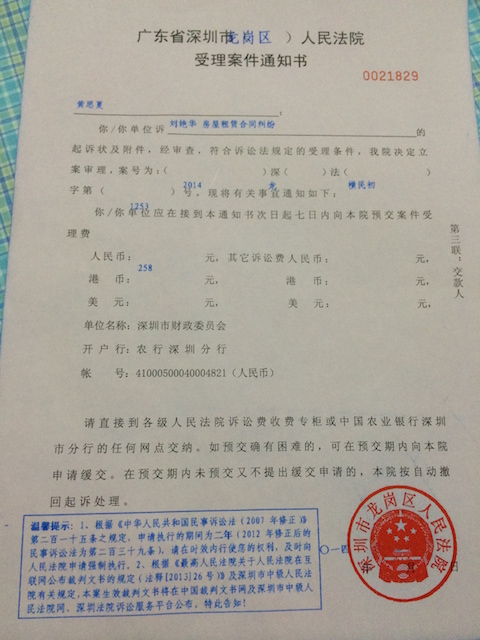 广东省深圳市龙岗区）人民法院
受理案件通知书
0021829
黄思夏：
你/你单位诉 刘艳华 房屋租赁合同纠纷 的
起诉状及附件，经审查，符合诉讼法规定的受理条件，我院决定立
案审理，案号为：（ 2014 ）深（ 龙 ）法（ 横民初 ）
字第（ 1253 ）号，现将有关事宜通知如下：
你/你单位应在接到本通知书次日起七日内向本院预交案件受
理费
人民币： 258 元，其它诉讼费人民币： 元，
港 币： 元， 港 币： 元，
美 元： 元， 美 元： 元，
单位名称：深圳市财政委员会
开 户 行：农行深圳分行
帐 号：41000500040004821（人民币）
请直接到各级人民法院诉讼费收费专柜或中国农业银行深圳
市分行的任何网点交纳。如预交确有困难的，可在预交期内向本院
申请缓交。在预交期内未预交又不提出缓交申请的，本院按自动撤
回起诉处理。
第三联：交款人
温馨提示：1、根据《中华人民共和国民事诉讼法（2007年修正）》
第二百一十五条之规定，申请执行的期间为二年（2012年修正后的
民事诉讼法为第二百三十九条），请在时效内行使您的权利，及时向
人民法院申请强制执行。2、根据《最高人民法院关于人民法院在互
联网公布裁判文书的规定（法释[2013]26号）》及深圳市中级人民法
院有关规定，本案生效裁判文书将在中国裁判文书网及深圳市中级人
民法院网、深圳法院诉讼服务平台公布，特此告知！
〇一四
日
深圳市龙岗区人民法院